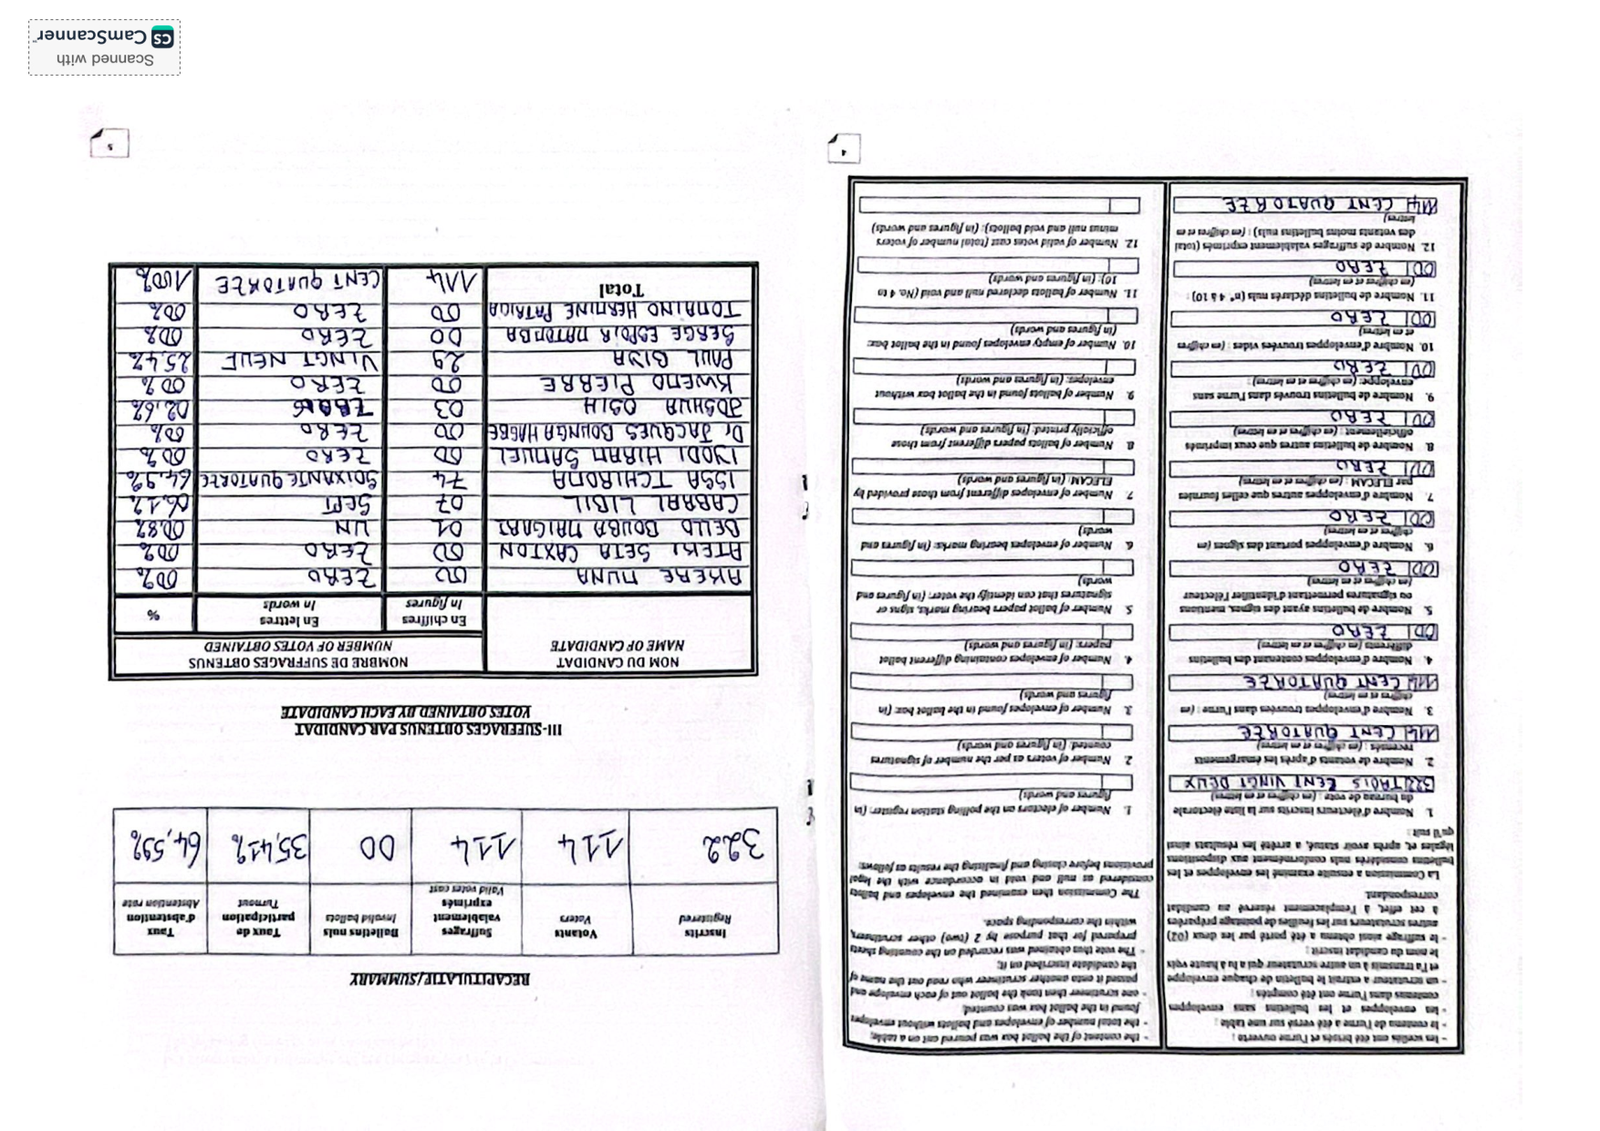 - les scellés ont été brisés et l'urne ouverte ;
- le contenu de l'urne a été versé sur une table ;
- les enveloppes et les bulletins sans enveloppes contenus dans l'urne ont été comptés ;
- un scrutateur a extrait le bulletin de chaque enveloppe et l'a transmis à un autre scrutateur qui a lu à haute voix le nom du candidat inscrit ;
- le suffrage ainsi obtenu a été porté par les deux (02) autres scrutateurs sur les feuilles de pointage préparées à cet effet, à l'emplacement réservé au candidat correspondant.
La Commission a ensuite examiné les enveloppes et les bulletins considérés nuls conformément aux dispositions légales et, après avoir statué, a arrêté les résultats ainsi qu'il suit :
1. Nombre d'électeurs inscrits sur la liste électorale du bureau de vote : (en chiffres et en lettres)
322 TROIS CENT VINGT DEUX
2. Nombre de votants d'après les émargements recensés : (en chiffres et en lettres)
114 CENT QUATORZE
3. Nombre d'enveloppes trouvées dans l'urne : (en chiffres et en lettres)
114 CENT QUATORZE
4. Nombre d'enveloppes contenant des bulletins différents (en chiffres et en lettres)
00 ZERO
5. Nombre de bulletins ayant des signes, mentions ou signatures permettant d'identifier l'électeur (en chiffres et en lettres)
00 ZERO
6. Nombre d'enveloppes portant des signes (en chiffres et en lettres)
00 ZERO
7. Nombre d'enveloppes autres que celles fournies par ELECAM : (en chiffres et en lettres)
00 ZERO
8. Nombre de bulletins autres que ceux imprimés officiellement : (en chiffres et en lettres)
00 ZERO
9. Nombre de bulletins trouvés dans l'urne sans enveloppe: (en chiffres et en lettres) :
00 ZERO
10. Nombre d'enveloppes trouvées vides : (en chiffres et en lettres)
00 ZERO
11. Nombre de bulletins déclarés nuls (n° 4 à 10) : (en chiffres et en lettres)
00 ZERO
12. Nombre de suffrages valablement exprimés (total des votants moins bulletins nuls) : (en chiffres et en lettres)
114 CENT QUATORZE
- the content of the ballot box was poured out on a table;
- the total number of envelopes and ballots without envelopes found in the ballot box was counted;
- one scrutineer then took the ballot out of each envelope and passed it onto another scrutineer who read out the name of the candidate inscribed on it;
- The vote thus obtained was recorded on the counting sheets prepared for that purpose by 2 (two) other scrutineers, within the corresponding space.
The Commission then examined the envelopes and ballots considered as null and void in accordance with the legal provisions before closing and finalizing the results as follows:
1. Number of electors on the polling station register: (in figures and words)
2. Number of voters as per the number of signatures counted: (in figures and words)
3. Number of envelopes found in the ballot box: (in figures and words)
4. Number of envelopes containing different ballot papers: (in figures and words)
5. Number of ballot papers bearing marks, signs or signatures that can identify the voter: (in figures and words)
6. Number of envelopes bearing marks: (in figures and words)
7. Number of envelopes different from those provided by ELECAM: (in figures and words)
8. Number of ballots papers different from those officially printed: (in figures and words)
9. Number of ballots found in the ballot box without envelopes: (in figures and words)
10. Number of empty envelopes found in the ballot box: (in figures and words)
11. Number of ballots declared null and void (No. 4 to 10): (in figures and words)
12. Number of valid votes cast (total number of voters minus null and void ballots): (in figures and words)
4
RECAPITULATIF/SUMMARY
Inscrits Registered | Votants Voters | Suffrages valablement exprimés Valid votes cast | Bulletins nuls Invalid ballots | Taux de participation Turnout | Taux d'abstention Abstention rate
322 | 114 | 114 | 00 | 35,41% | 64,59%
III- SUFFRAGES OBTENUS PAR CANDIDAT
VOTES OBTAINED BY EACH CANDIDATE
NOM DU CANDIDAT NAME OF CANDIDATE | NOMBRE DE SUFFRAGES OBTENUS NUMBER OF VOTES OBTAINED
En chiffres In figures | En lettres In words | %
AKERE MUNA | 00 | ZERO | 00%
ATEKI SETA CAXTON | 00 | ZERO | 00%
BELLO BOUBA MAIGARI | 01 | UN | 00,8%
CABRAL LIBII | 07 | SEPT | 06,1%
ISSA TCHIROMA | 74 | SOIXANTE QUATORZE | 64,9%
IYODI HIRAM SAMUEL | 00 | ZERO | 00%
Dr JACQUES BOUNGA HAGBE | 00 | ZERO | 00%
JOSHUA OSIH | 03 | TROIS | 02,6%
KWEMO PIERRE | 00 | ZERO | 00%
PAUL BIYA | 29 | VINGT NEUF | 25,4%
SERGE ESPOIR MATOMBA | 00 | ZERO | 00%
TOMAINO HERMINE PATRICIA | 00 | ZERO | 00%
Total | 114 | CENT QUATORZE | 100%
5
Scanned with
CS CamScanner